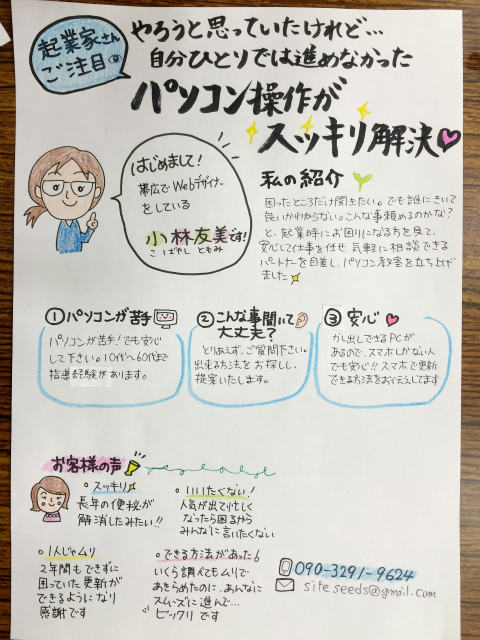 起業家さん
ご注目
やろうと思っていたけれど…
自分ひとりでは進めなかった
パソコン操作が
スッキリ解決
はじめまして!
帯広でWebデザイナー
をしている
小林友美です!
こばやし ともみ
私の紹介
困ったところだけ聞きたい。でも誰にきいて
良いかわからない。こんな事頼めるのかな?
と、起業時にお困りになる方を見て、
安心して仕事を任せ 気軽に相談できる
パートナーを目差し、パソコン教室を立ち上げ
ました
①パソコンが苦手
パソコンが苦手!でも安心
して下さい。10代〜60代まで
指導経験があります。
②こんな事聞いて
大丈夫?
とりあえず、ご質問下さい。
出来る方法をお探しし、
提案いたします。
③安心
かし出しできるPCが
あるので、スマホしかない人
でも安心!!スマホで更新
できる方法をお伝えしてます
お客様の声
スッキリ
長年の便秘が
解消したみたい!!
いいたくない!
人気が出て忙しく
なったら困るから
みんなに言いたくない
1人じゃムリ
2年間もできずに
困っていた更新が
できるようになり
感謝です
できる方法があった!
いくら調べてもムリで
あきらめたのに、あんなに
スムーズに進んで…
ビックリです
090-3291-9624
site.seeds@gmail.com